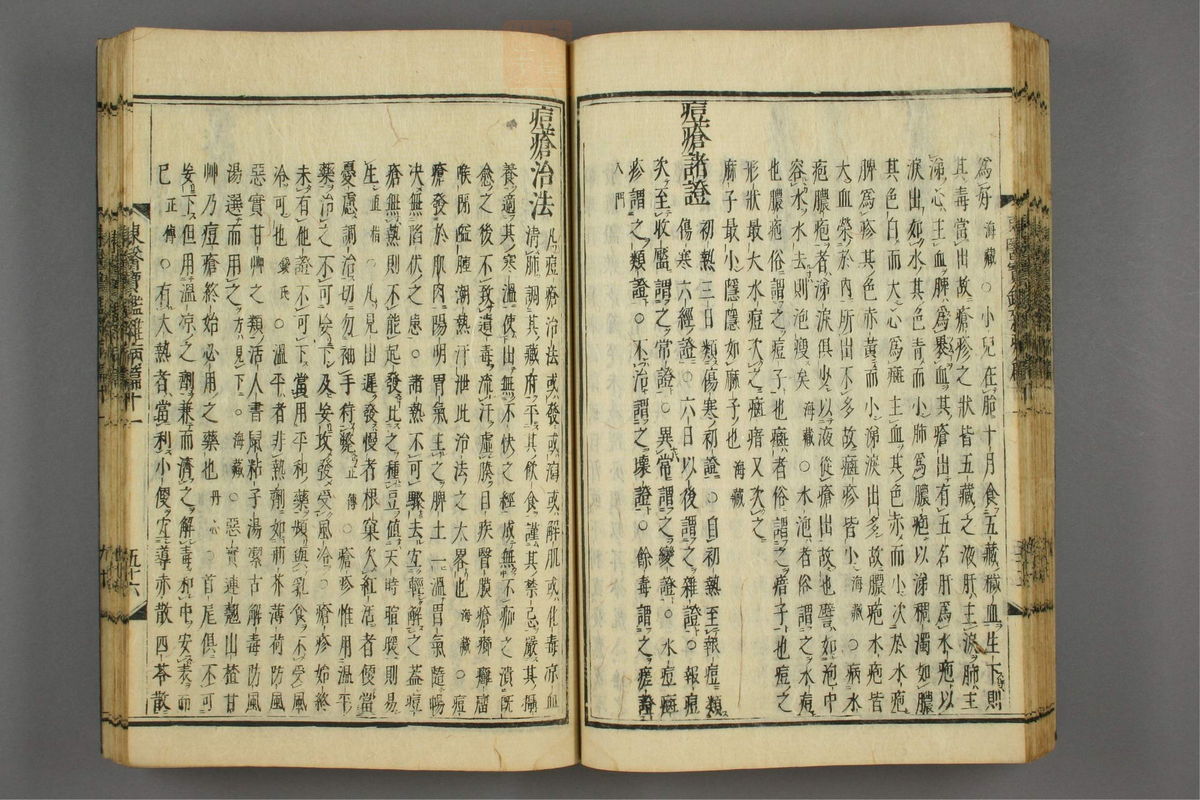 為好 海藏 ○小兒在胎十月食五藏穢血生下則
其毒當出故瘡疹之狀皆五藏之液肝主淚肺主
涕心主血脾為裹血其瘡出有五名肝為水疱以
淚出如水其色青而小肺為膿疱以涕稠濁如膿
其色白而大心為癍主血其色赤而小次於水疱
脾為疹其色赤黃而小涕淚出多故膿疱水疱皆
大血榮於內所出不多故癍疹皆小 海藏 ○病水
疱膿疱者涕淚俱少以液從瘡出故也譬如泡中
容水水去則泡瘦矣 海藏 ○水泡者俗謂之水痘
也膿疱俗謂之痘子也癍者俗謂之瘄子也痘之
形狀最大水痘次之癍瘄又次之
麻子最小隱隱如麻子也 海藏
痘瘡諸證 初熱三日類傷寒初證○自初熱至報痘類
傷寒六經證○六日以後謂之雜證○報痘
次至收靨謂之常證○異常謂之變證○水痘癍
疹謂之類證○不治謂之壞證○餘毒謂之瘥證
入門
痘瘡治法 凡痘瘡治法或發或瀉或解肌或化毒凉血
清肺調其藏府平其飲食謹其禁忌嚴其攝
養適其寒溫使出無不伏之經成無不痂之潰既
愈之後不致遺毒流汗虛膿目疾腎膜瘡癤癬瘤
喉閉嗌腫潮熱汗泄此治法之大畧也 海藏 ○痘
瘡發於肌肉陽明胃氣主之脾土一溫胃氣隨暢
決無陷伏之患○諸熱不可驟去宜輕解之盖痘
瘡無熱則不能起發比之種豆值天時暄暖則易
生 直指 ○凡見出遲發慢者根窠欠紅活者便當
憂慮調治切勿袖手待斃 正傳 ○瘡疹惟用溫平
藥治之不可妄下及妄攻發受風冷○瘡疹始終
未有他證不可下當用平和藥頻與乳食不受風
冷可也 錢氏 ○溫平者非熱劑如荊芥薄荷防風
惡實甘艸之類活人書鼠粘子湯潔古解毒防風
湯選而用之 方見下 ○海藏○惡實連翹山楂甘
艸乃痘瘡終始必用之藥也 丹心 ○首尾俱不可
妄下但用溫涼之劑兼而濟之解毒和中安表而
已 正傳 ○有大熱者當利小便宜導赤散四苓散
東醫寶鑑雜病篇十一 五十六